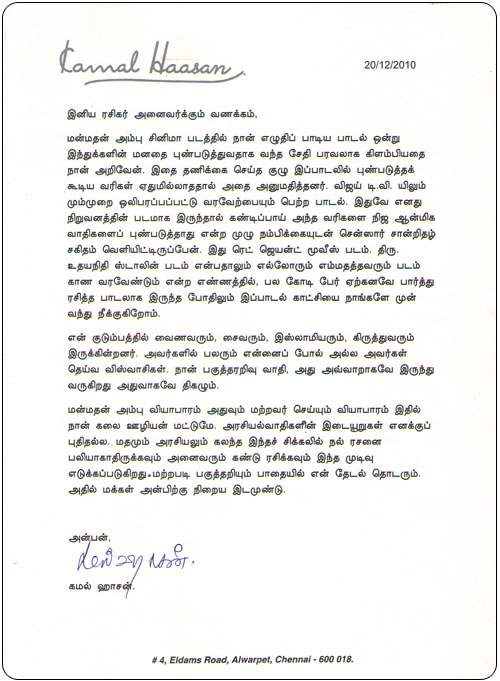 Kamal Haasan.
20/12/2010
இனிய ரசிகர் அனைவர்க்கும் வணக்கம்,
மன்மதன் அம்பு சினிமா படத்தில் நான் எழுதிப் பாடிய பாடல் ஒன்று
இந்துக்களின் மனதை புண்படுத்துவதாக வந்த சேதி பரவலாக கிளம்பியதை
நான் அறிவேன். இதை தணிக்கை செய்த குழு இப்பாடலில் புண்படுத்தக்
கூடிய வரிகள் ஏதுமில்லாததால் அதை அனுமதித்தனர். விஜய் டி.வி. யிலும்
மும்முறை ஒலிபரப்பப்பட்டு வரவேற்பையும் பெற்ற பாடல். இதுவே எனது
நிறுவனத்தின் படமாக இருந்தால் கண்டிப்பாய் அந்த வரிகளை நிஜ ஆன்மிக
வாதிகளைப் புண்படுத்தாது என்ற முழு நம்பிக்கையுடன் சென்ஸார் சான்றிதழ்
சகிதம் வெளியிட்டிருப்பேன். இது ரெட் ஜெயன்ட் மூவீஸ் படம். திரு.
உதயநிதி ஸ்டாலின் படம் என்பதாலும் எல்லோரும் எம்மதத்தவரும் படம்
காண வரவேண்டும் என்ற எண்ணத்தில், பல கோடி பேர் ஏற்கனவே பார்த்து
ரசித்த பாடலாக இருந்த போதிலும் இப்பாடல் காட்சியை நாங்களே முன்
வந்து நீக்குகிறோம்.
என் குடும்பத்தில் வைணவரும், சைவரும், இஸ்லாமியரும், கிருத்துவரும்
இருக்கின்றனர். அவர்களில் பலரும் என்னைப் போல் அல்ல அவர்கள்
தெய்வ விஸ்வாசிகள். நான் பகுத்தறிவு வாதி, அது அவ்வாறாகவே இருந்து
வருகிறது அதுவாகவே திகழும்.
மன்மதன் அம்பு வியாபாரம் அதுவும் மற்றவர் செய்யும் வியாபாரம் இதில்
நான் கலை ஊழியன் மட்டுமே. அரசியல்வாதிகளின் இடையூறுகள் எனக்குப்
புதிதல்ல. மதமும் அரசியலும் கலந்த இந்தச் சிக்கலில் நல் ரசனை
பலியாகாதிருக்கவும் அனைவரும் கண்டு ரசிக்கவும் இந்த முடிவு
எடுக்கப்படுகிறது. மற்றபடி பகுத்தறியும் பாதையில் என் தேடல் தொடரும்.
அதில் மக்கள் அன்பிற்கு நிறைய இடமுண்டு.
அன்பன்,
கமல் ஹாசன்.
# 4, Eldams Road, Alwarpet, Chennai - 600 018.